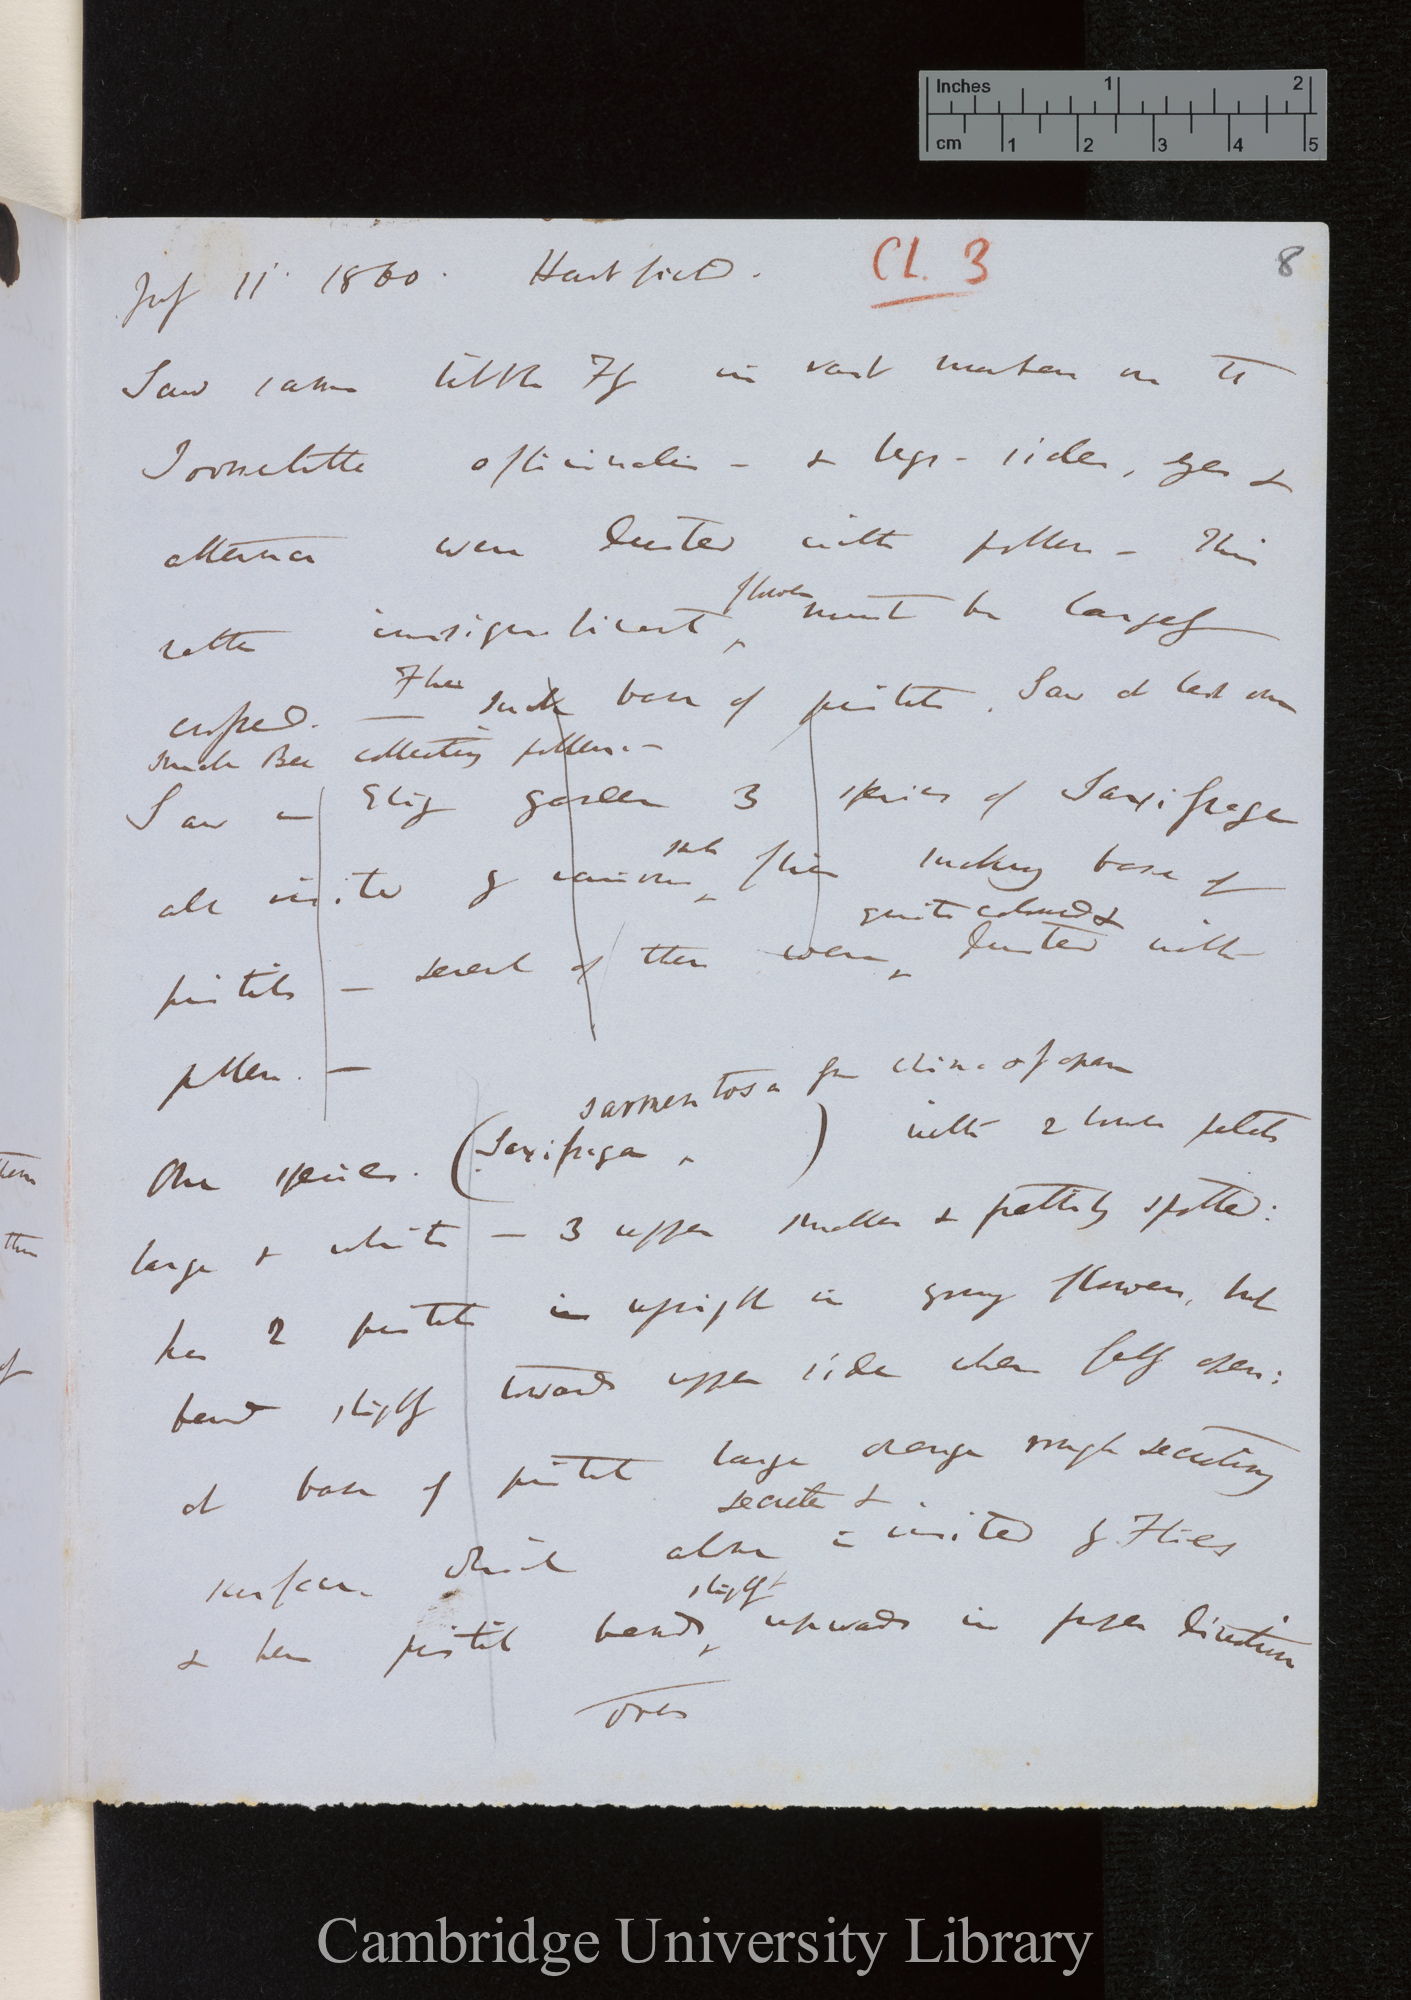 July 11 1860. Hartfield.
Cl. 3
8
Saw same little Fly in vast numbers on the
officinalis — & legs — sides, eyes &
antennæ were dusted with pollen — This
rather insignificant flower must be largely
crossed. — Flies suck base of pistils. Saw at last one
small Bee collecting pollen. —
Saw in Eliz garden 3 species of Saxifraga
all visited by various flies sucking base of
pistils — several of them were quite coloured & dusted with
pollen. —
One species. (Saxifraga sarmentosa fr China & Japan) with 2 lower petals
large & white — 3 upper smaller & prettily spotted:
has 2 pistils upright in young flowers, but
bend slightly towards upper side when fully open:
at base of pistil large orange rough secreting
surface. which alone secretes & is visited by Flies
& here pistil bends slightly upwards in proper direction
over
Inches 1 2
cm 1 2 3 4 5
them
of
Cambridge University Library